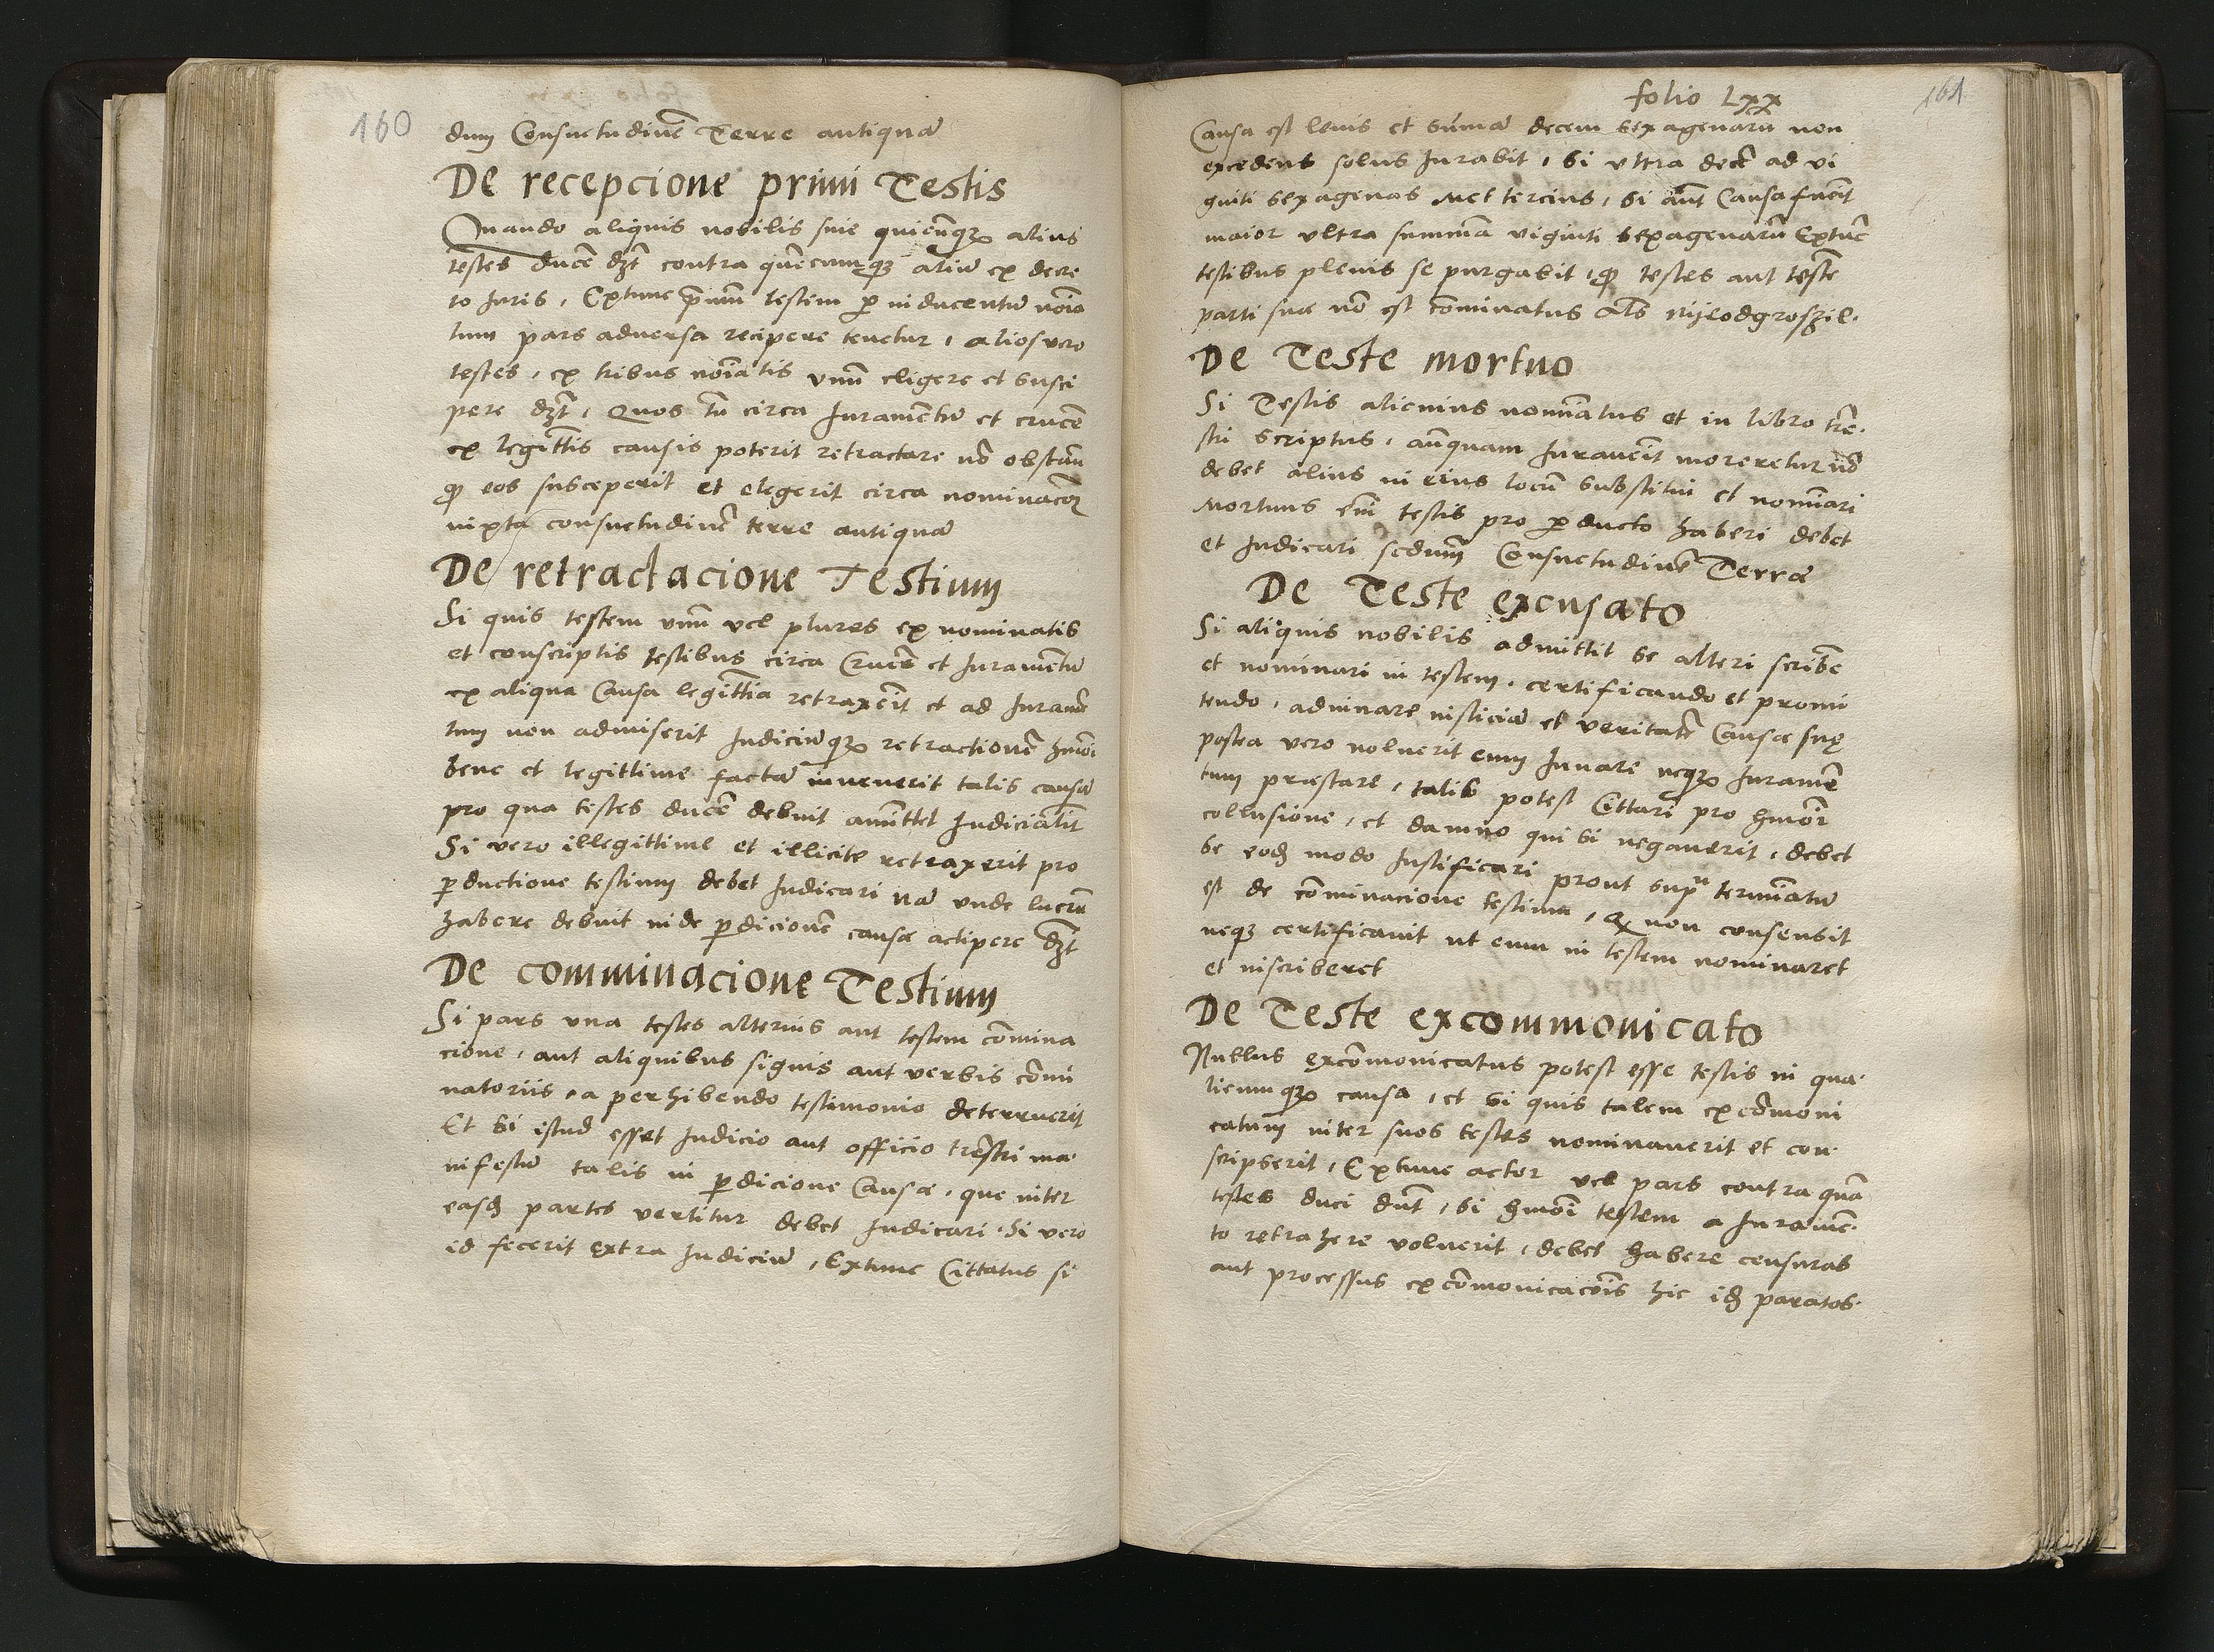 160
dum Consuetudinē Terre antiquā
De recepcione primi Testis
Quando aliquis nobilis siue quicūqʒ alius
testes ducē dʒt contra quēcumqʒ aliū ex decre
to Juris, Extunc p̄mum testem per inducentū noīa
tum pars aduersa recipere tenetur, alios vero
testes, ex tribus noīatis vnū eligere et susci
pere dʒt, Quos tn̄ circa Juramentū et crucē
ex legittīs causis poterit retractare nō obstān
qd eos susceperit et elegerit circa nominacōʒ
iuxta consuetudinē terre antiquā
De retractacione Testium
Si quis testem vnū vel plures ex nominatis
et conscriptis testibus circa Crucē et Juramentū
ex aliqua Causa legittīa retraxeīt et ad Juramē
tum non admiserit Judiciūqʒ retractionē hmōi
bene et legittime factā inuenerit talis causā
pro qua testes ducē debuit amittet Judicialīt
Si vero illegittime et illicite retraxerit pro
perductione testium debet Judicari nā vnde lucrū
habere debuit inde perdicionē causæ accipere dʒt
De comminacione Testium
Si pars vna testes alterius aut testem cōmina
cione, aut aliquibus signis aut verbis cōmi
natoriis, a perhibendo testimonio deterruerit
Et si istud esset Judicio aut officio trēstri ma-
nifestū talis in perdicione Causæ, que inter
easdʒ partes vertitur debet Judicari. Si vero
id fecerit extra Judiciū, Extunc Cittatus si
folio Lxx
161
Causa est leuis et sūmā decem sexagenarū non
excedens solus Jurabit, Si vltra decē ad vi
ginti sexagenas Met tercius, Si aūt Causa fueīt
maior vltra summā viginti sexagenarū Extūc
testibus plenis se purgabit, qd testes aut testē
parti suæ nō est cōminatus
De Teste mortuo
Si Testis alicuius nominatus et in libro trē-
stri scriptus, anteq̄quam Juraueīt moreretur nō
debet alius in eius locū substitui et nomīari
Mortuus em̄ testis pro perducto haberi debet
et Judicari secdum Consuetudinē Terræ
De Teste excusato
Si aliquis nobilis admittit se alteri scribē
et nominari in testem, certificando et promi
tendo, adiuuare iusticiā et veritatē Causæ suę
postea vero noluerit eum Juuare neqʒ Juramē
tum præstare, talis potest Cittari pro hmōi
collusione, et damno qui si negauerit, debet
se eodʒ modo Justificari prout supra termīatū
est de cōminacione testium, qd non consensit
neqʒ certificauit ut eum in testem nominaret
et inscriberet
De Teste excommonicato
Nullus excōmonicatus potest esse testis in qua-
licumqʒ causa, et si quis talem excōmoni
catum inter suos testes nominauerit et con-
scripserit, Extunc actor vel pars contra quā
testes duci dn̄t, si hmōi testem a Juramē-
to retrahere voluerit, debet habere censuras
aut processus excōmonicacōis hic idʒ paratos.